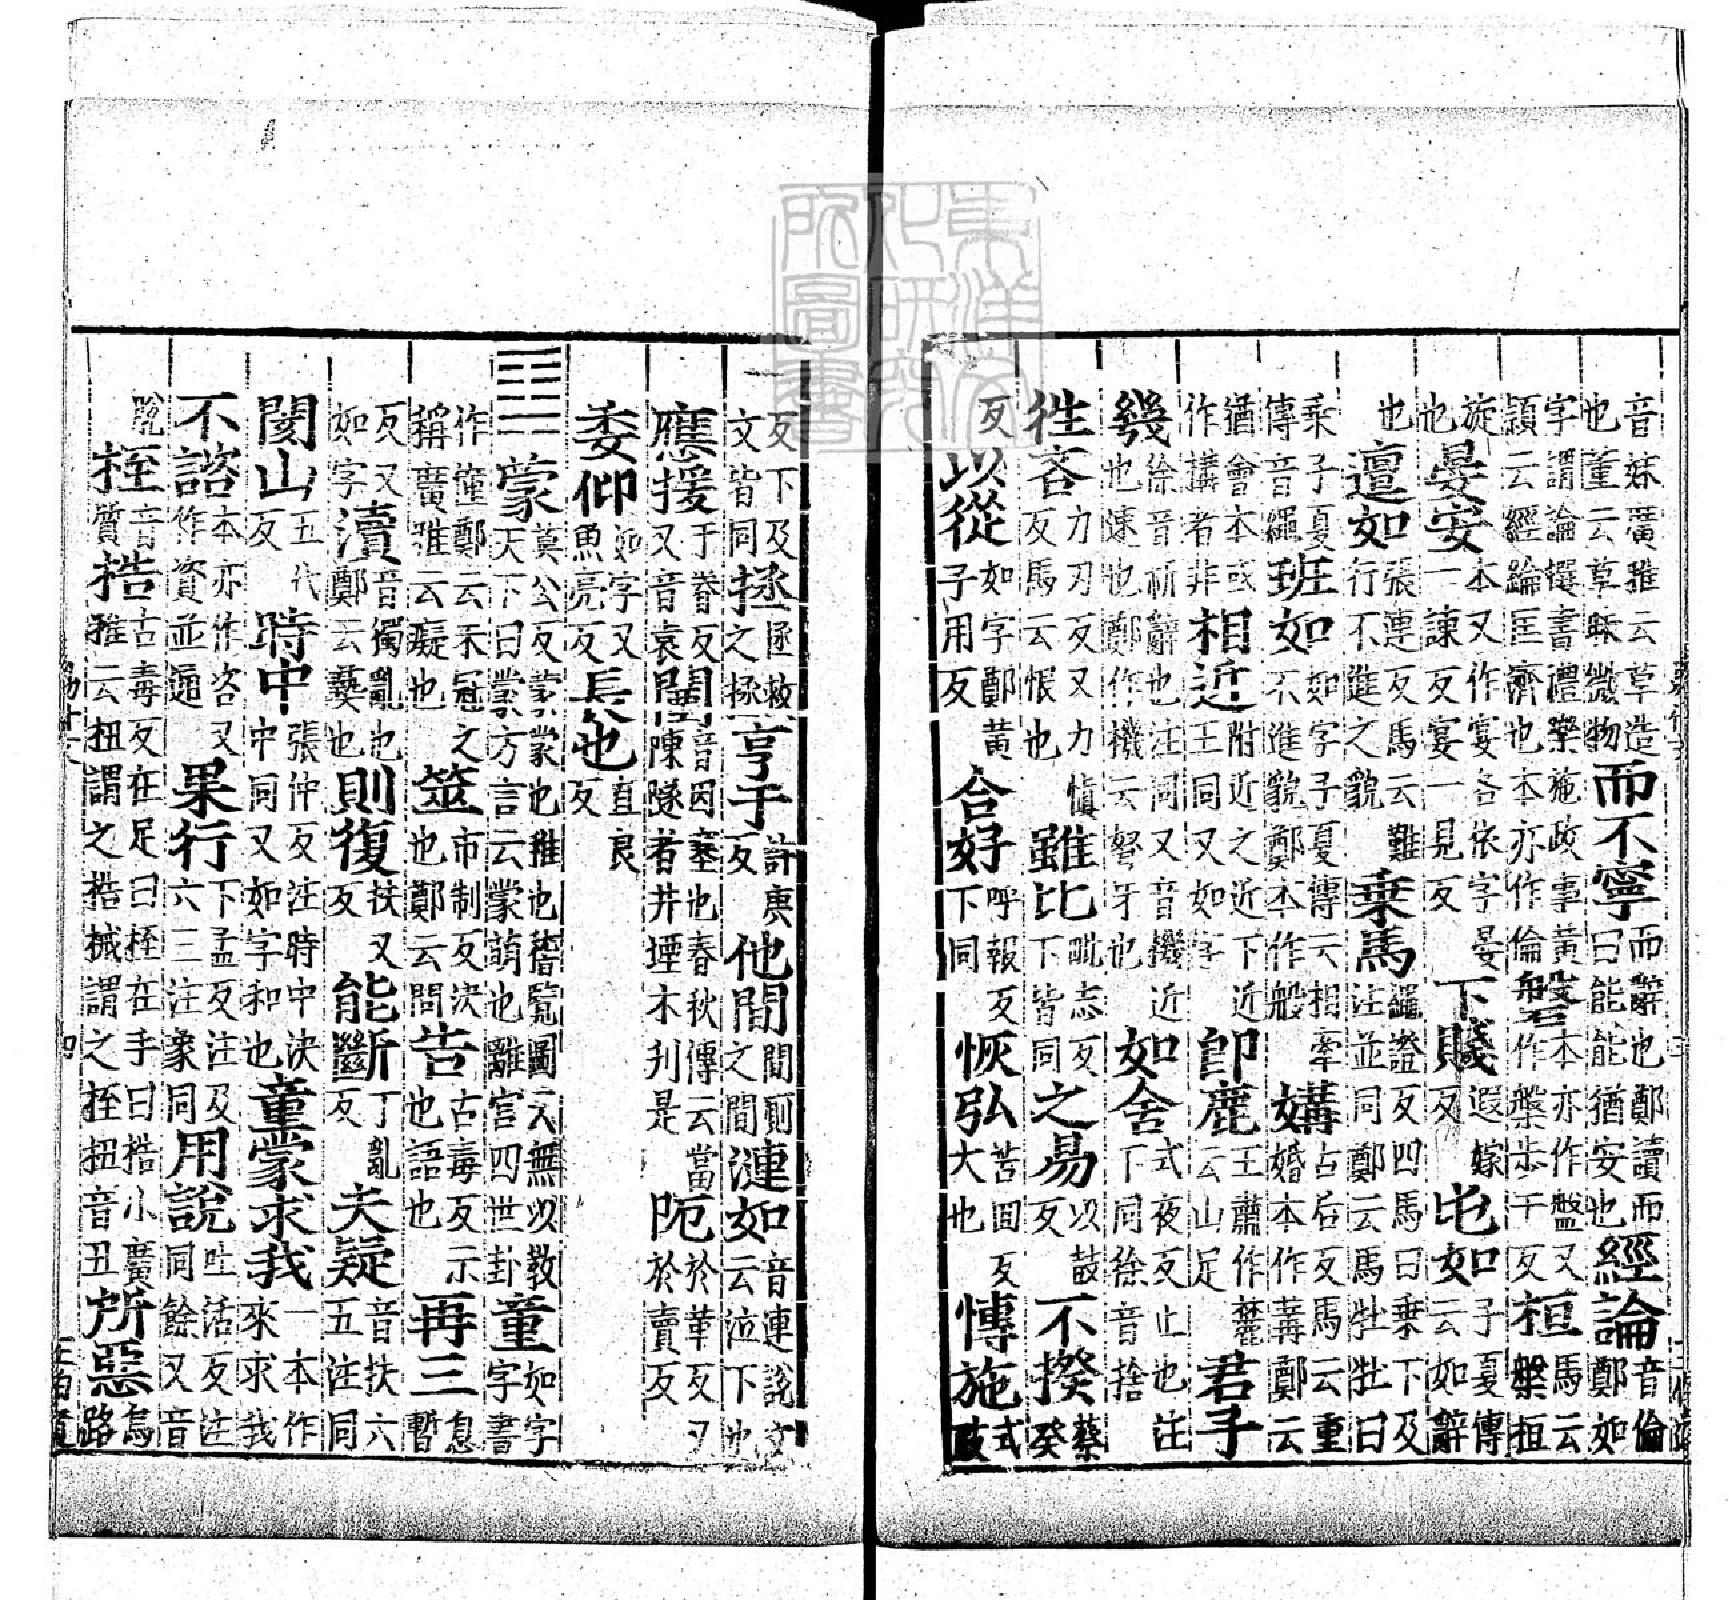 音妹廣雅云草造也董云草昧微物而不寧而辭也鄭讀而曰能能猶安也經論音倫鄭如
字謂論撰書禮樂施政事黃穎云經論匡濟也本亦作倫磐本亦作盤又作槃步干反桓馬云槃桓
旋也晏安本又作宴各依字晏一諫反宴一見反下賤遐嫁反屯如子夏傳云如辭
也邅如張連反馬云難行不進之貌乗馬繩證反四馬曰乗下及注並同鄭云馬牝牡曰
乗子夏傳音繩班如如字子夏傳云相牽不進貌鄭本作般媾古后反馬云重婚本作冓鄭云
猶會本或作構者非相近附近之近下近王同又如字即鹿王肅作麓云山足君子
幾徐音祈辭也注同又音機近也速也鄭作機云弩牙也如舍式夜反止也注下同徐音捨
徃吝力刃反又力慎反馬云恨也雖比毗志反下皆同之易以豉反不揆葵癸
反以從如字鄭黃子用反合好呼報反下同恢弘苦回反大也慱施式豉
反下及文皆同拯拯救之拯亨于許庚反他間間厠之間漣如音連說文云泣下也
應援于眷反又音袁闉音因塞也春秋傳云當陳隧者井堙木刋是阨於革反又於賣反
委仰如字又魚亮反長也直良反
䷃蒙莫公反蒙蒙也稚也稽覽圖云無以教天下曰蒙方言云蒙萌也離宮四世卦童如字字書
作僮鄭云未冠之稱廣雅云癡也筮市制反決也鄭云問告古毒反示也語也再三息暫
反又如字瀆音獨亂也鄭云褻也則復扶又反能斷丁亂反夫疑音扶六五注同
閡山五代反時中張仲反注時中決中同又如字和也童蒙求我一本作來求我
不諮本亦作咨又作資並通果行下孟反注及六三注象同用說吐活反注同餘又音
脫桎音質梏古毒反在足曰桎在手曰梏小廣雅云杻謂之梏械謂之桎杻音丑所惡烏路